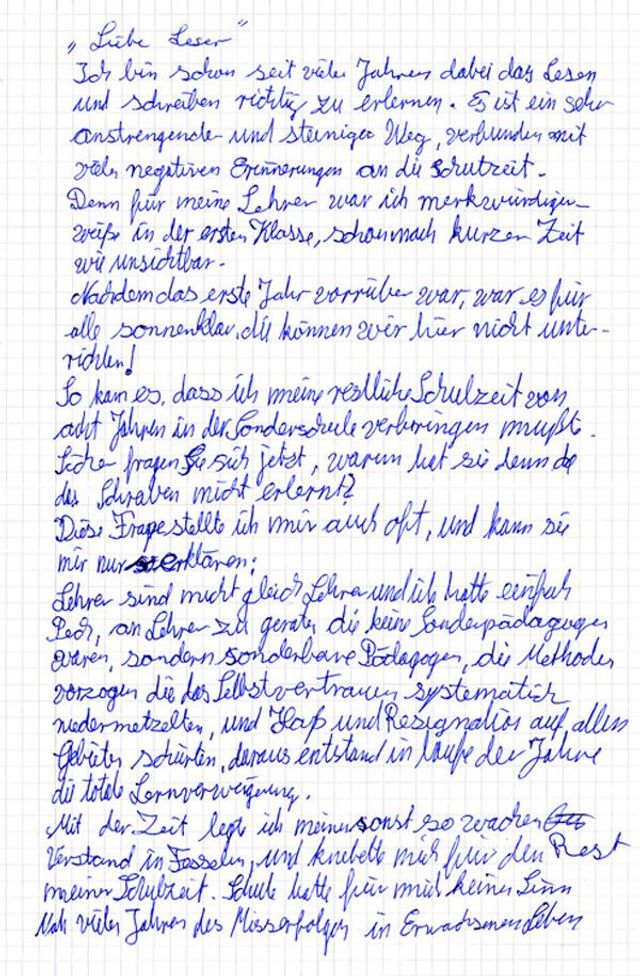 „Liebe Leser"
Ich bin schon seit vielen Jahren dabei das Lesen
und schreiben richtig zu erlernen. Es ist ein sehr
anstrengender und steiniger Weg, verbunden mit
vielen negativen Erinnerungen an die Schulzeit.
Denn für meine Lehrer war ich merkwürdiger-
weiße in der ersten Klasse, schon nach kurzer Zeit
wie unsichtbar.
Nachdem das erste Jahr vorrüber war, war es für
alle sonnenklar, die können wir hier nicht unter-
richten!
So kam es, dass ich meine restliche Schulzeit von
acht Jahren in der Sonderschule verbringen mußte.
Sicher fragen Sie sich jetzt, warum hat sie denn da
das Schreiben nicht erlernt?
Diese Frage stellte ich mir auch oft, und kann sie
mir nur erklären:
Lehrer sind nicht gleich Lehrer und ich hatte einfach
Pech, an Lehrer zu geraten die keine Sonderpädagogen
waren, sondern sonderbare Pädagogen, die Methoden
vorzogen die das Selbstvertrauen systematisch
niedermetzelten, und Haß und Resignation auf allen
Gebieten schürten, daraus entstand in laufe der Jahre
die totale Lernverweigerung.
Mit der Zeit legte ich meinen sonst so wachen
Verstand in Fesseln, und knebelte mich für den Rest
meiner Schulzeit. Schule hatte für mich keinen Sinn
Nach vielen Jahren des Misserfolges in Erwachsenen Leben